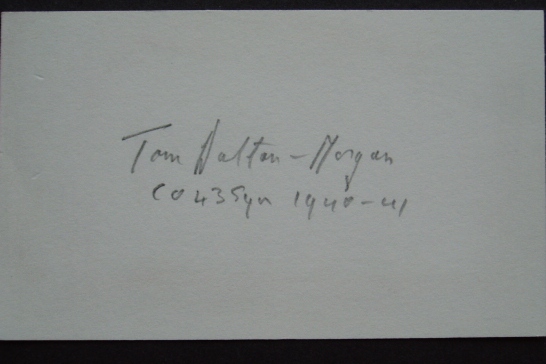 Tom Dalton-Morgan
CO 43 Sqn 1940-41